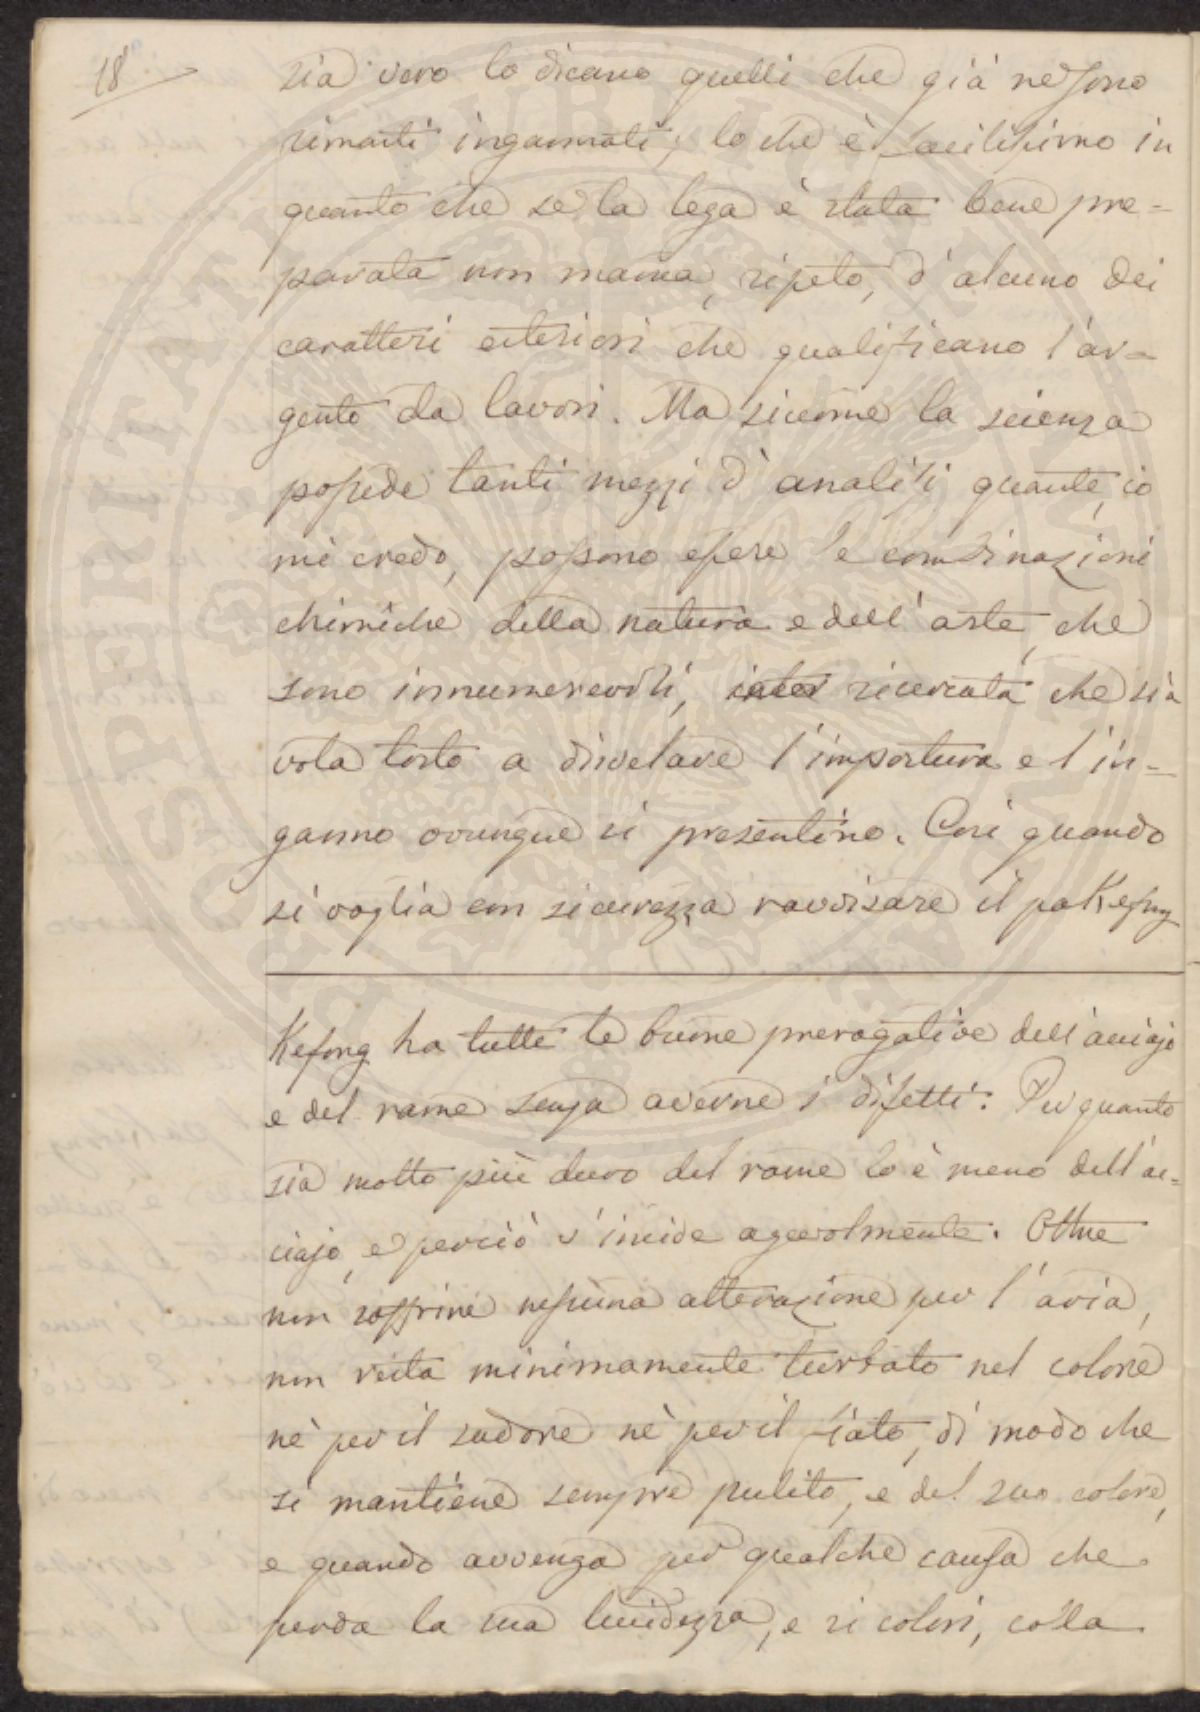 18
sia vero lo dicano quelli che già ne sono
rimasti ingannati; lo che è facilissimo in
quanto che se la lega è stata bene pre=
parata non manca, ripeto, d'alcuno dei
caratteri esteriori che qualificano l'ar=
gento da lavori. Ma siccome la scienza
possiede tanti mezzi d'analisi quante, io
mi credo, possono essere le combinazioni
chimiche della natura e dell'arte, che
sono innumerevoli, ricercata che sia
vola tosto a disvelare l'impostura e l'in=
ganno ovunque si presentino. Così quando
si voglia con sicurezza ravvisare il pakfong
Kefong ha tutte le buone prerogative dell'acciajo
e del rame senza averne i difetti. Per quanto
sia molto più duro del rame lo è meno dell'ac=
ciajo, e perciò s'incide agevolmente. Oltre
non soffrire nessuna alterazione per l'aria,
non resta minimamente turbato nel colore
nè per il sudore nè per il fiato, di modo che
si mantiene sempre pulito, e del suo colore,
e quando avvenga per qualche causa che
perda la sua lucidezza, e si colori, colla
SPERITATI PUBLICAE